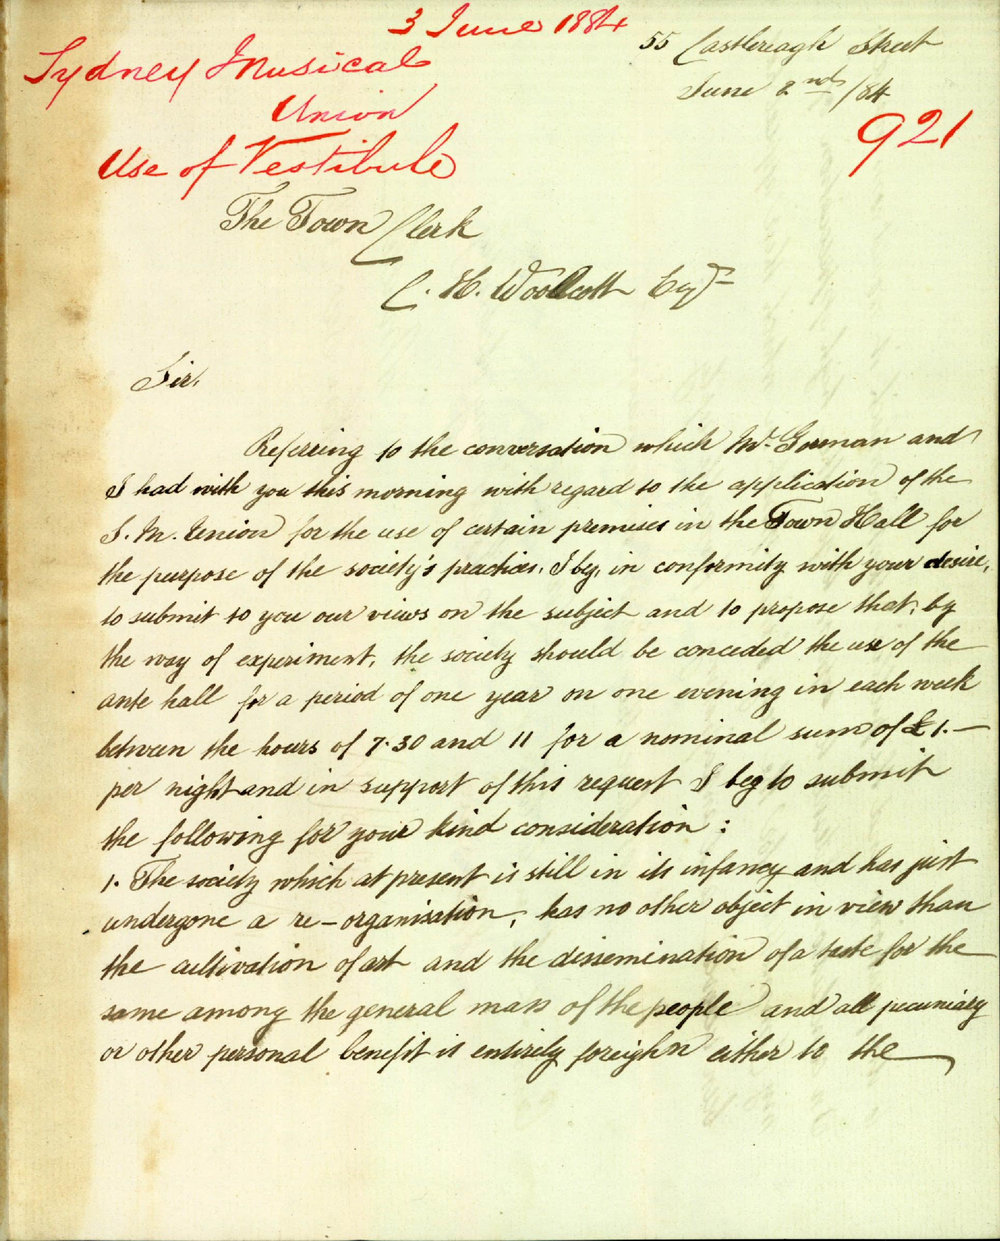 3 June 1884
Sydney Musical
Union
Use of Vestibule
55 Castlereagh Street
June 2nd /84
921
The Town Clerk
C. H. Woolcott Esqr
Sir,
Referring to the conversation which Mr. Gorman and
I had with you this morning with regard to the application of the
S. M. Union for the use of certain premises in the Town Hall for
the purpose of the society's practices. I beg, in conformity with your desire,
to submit to you our views on the subject and to propose that, by
the way of experiment, the society should be conceded the use of the
ante hall for a period of one year on one evening in each week
between the hours of 7.30 and 11 for a nominal sum of £1.—
per night and in support of this request I beg to submit
the following for your kind consideration :
1. The society which at present is still in its infancy and has just
undergone a re-organisation, has no other object in view than
the cultivation of art and the dissemination of a taste for the
same among the general mass of the people and all pecuniary
or other personal benefit is entirely foreighn either to the